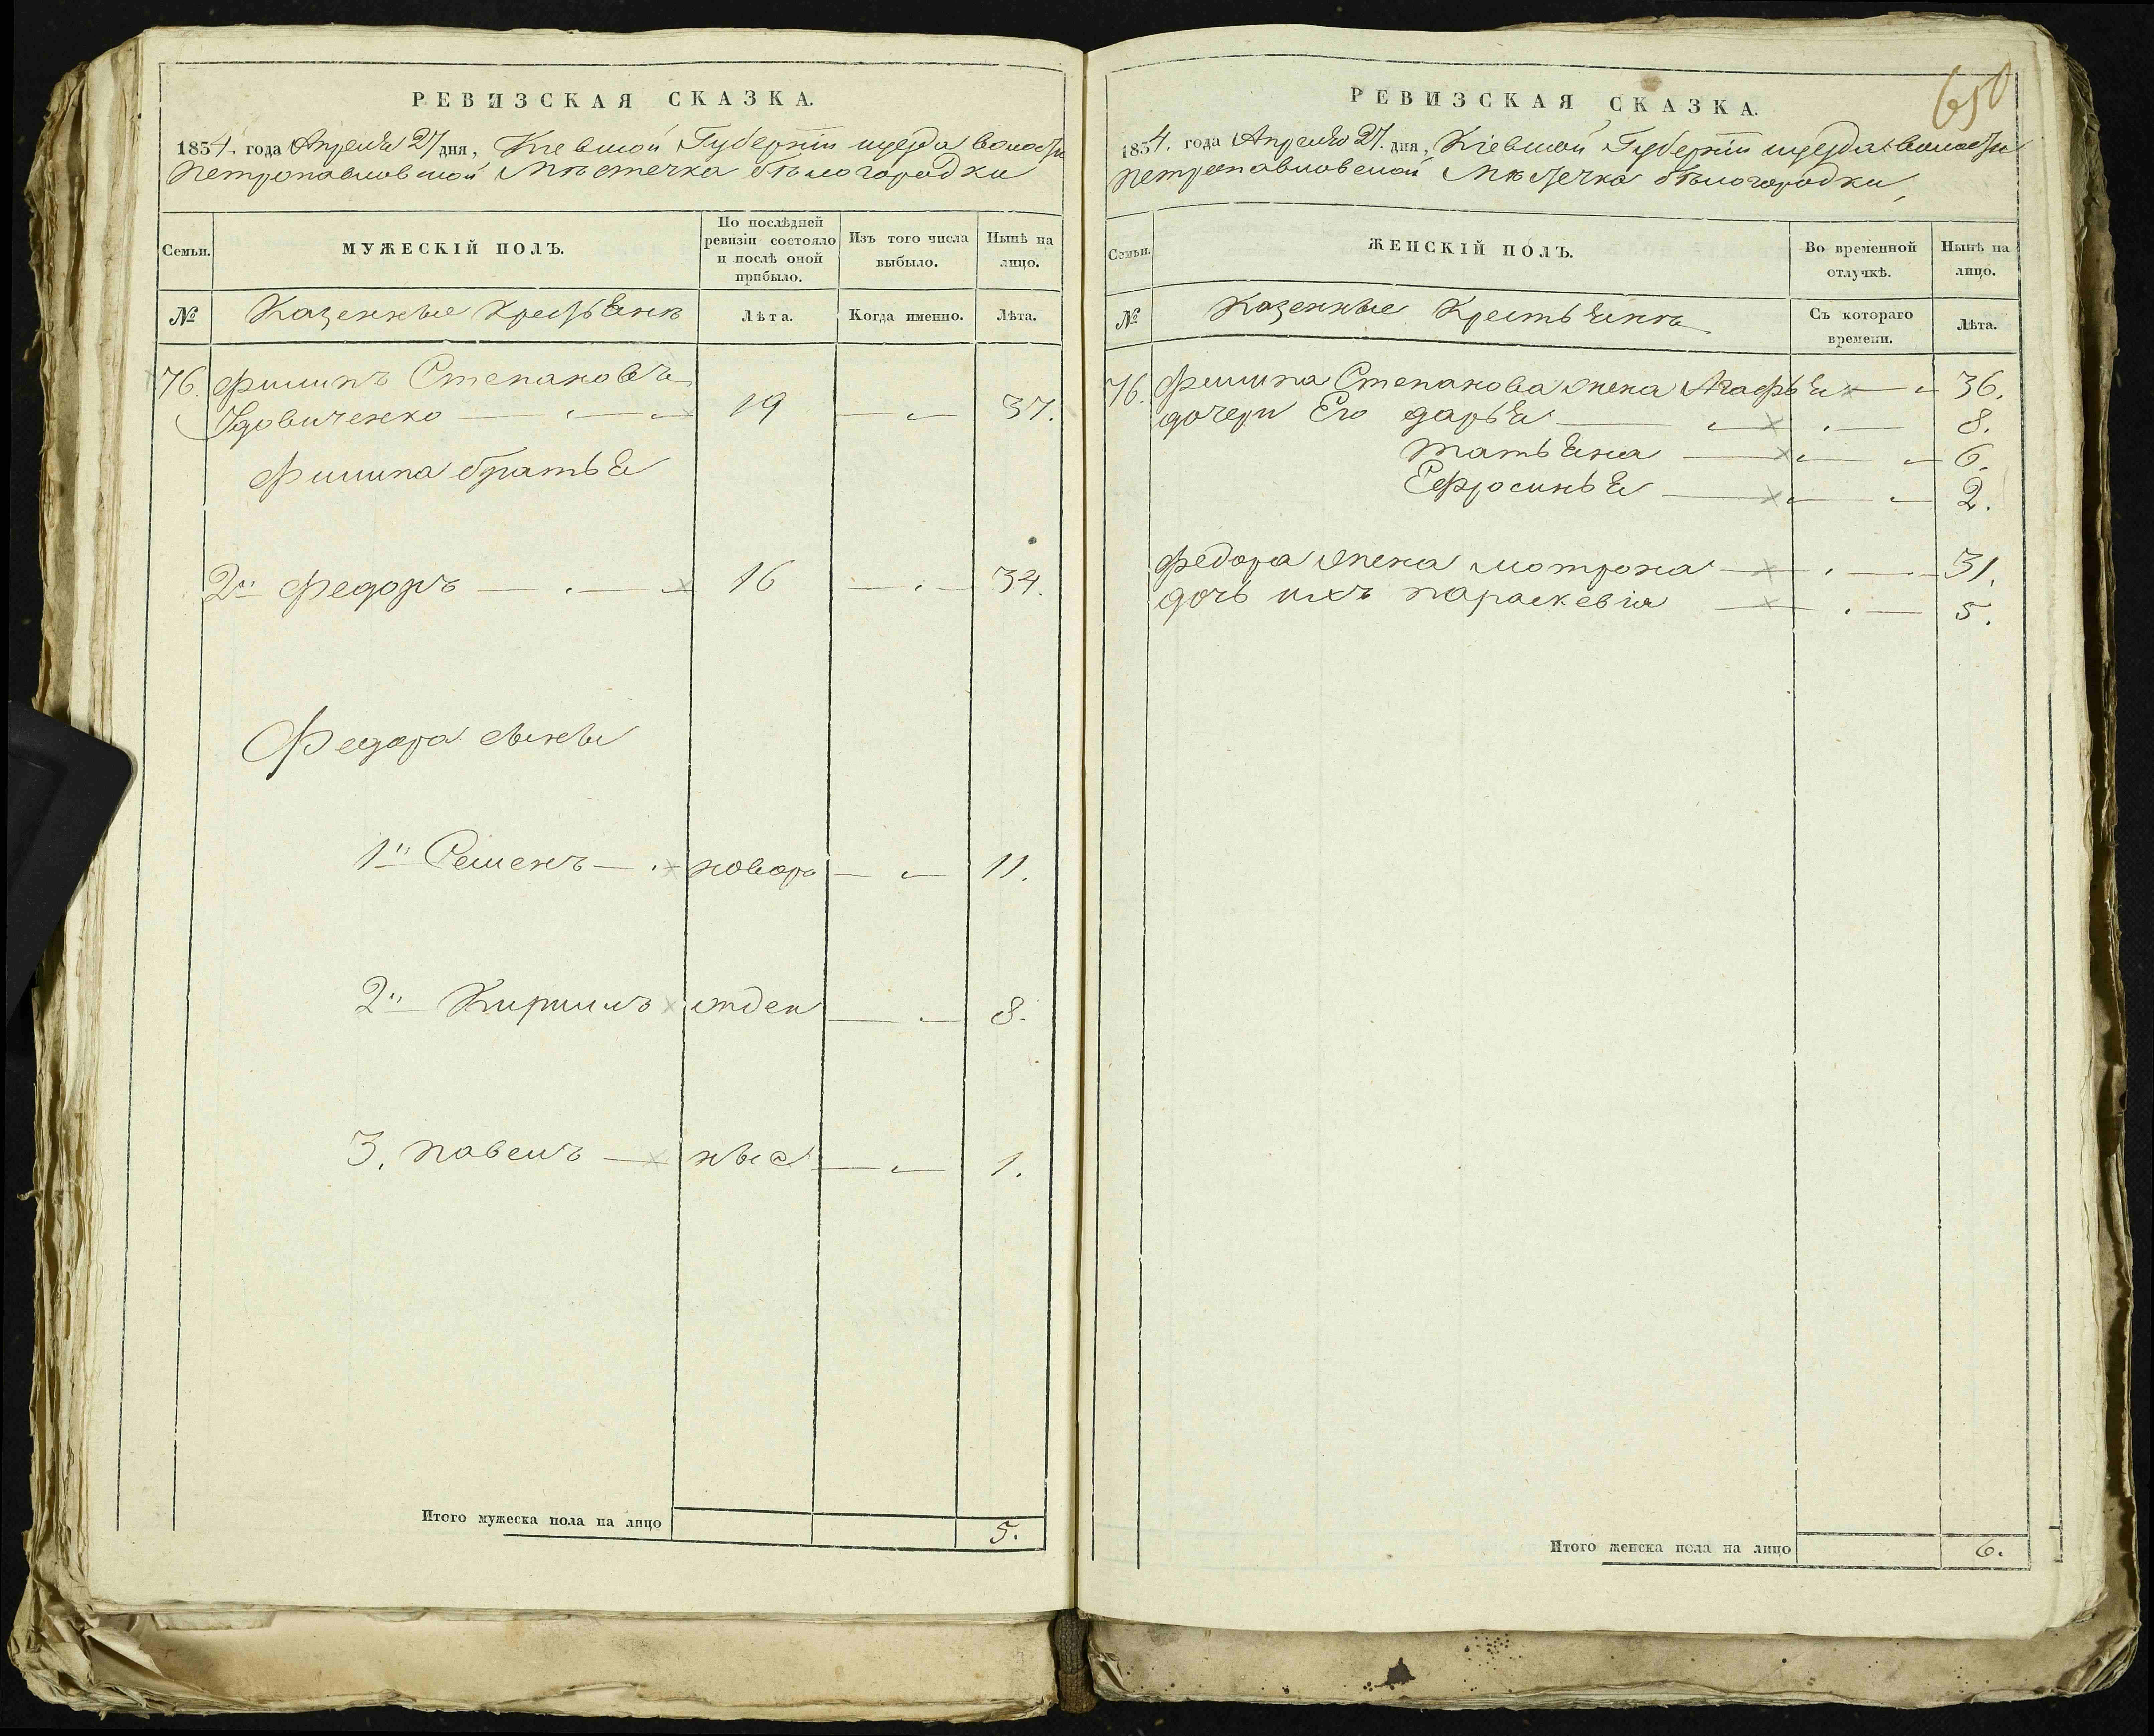 РЕВИЗСКАЯ СКАЗКА.
1854. года Апреля 27 дня, Киевской Губерніи уезда волости
Петропавловской Мѣстечка бѣлогородки
Семьи.
МУЖЕСКІЙ ПОЛЪ.
По послѣдней ревизіи состояло и послѣ оной прибыло.
Изъ того числа выбыло.
Нынѣ на лицо.
№
Казенные Крестьянѣ
Лѣта.
Когда именно.
Лѣта.
76. Филипъ Степановъ
Удовиченко — 19 — 37.
Филипа братья
2й Федоръ — 16 — 34.
Федора сыны
1й Семенъ — новоро — 11.
2й Кирилъ жден — 8.
3. павелъ — ныа — 1.
Итого мужеска пола на лицо 5.
650
РЕВИЗСКАЯ СКАЗКА.
1854. года Апреля 27. дня, Кіевской Губерніи уезда волости
Петропавловской Мѣстечка бѣлогородки,
Семьи.
ЖЕНСКІЙ ПОЛЪ.
Во временной отлучкѣ.
Нынѣ на лицо.
№
Казенные Крестьянѣ
Съ котораго времени.
Лѣта.
76. Филипа Степанова жена Агафья — 36.
дочери Его дарья — 8.
татьяна — 6.
Ефросинья — 2.
Федора жена мотрона — 31.
дочь ихъ параскевія — 5.
Итого женска пола на лицо 6.